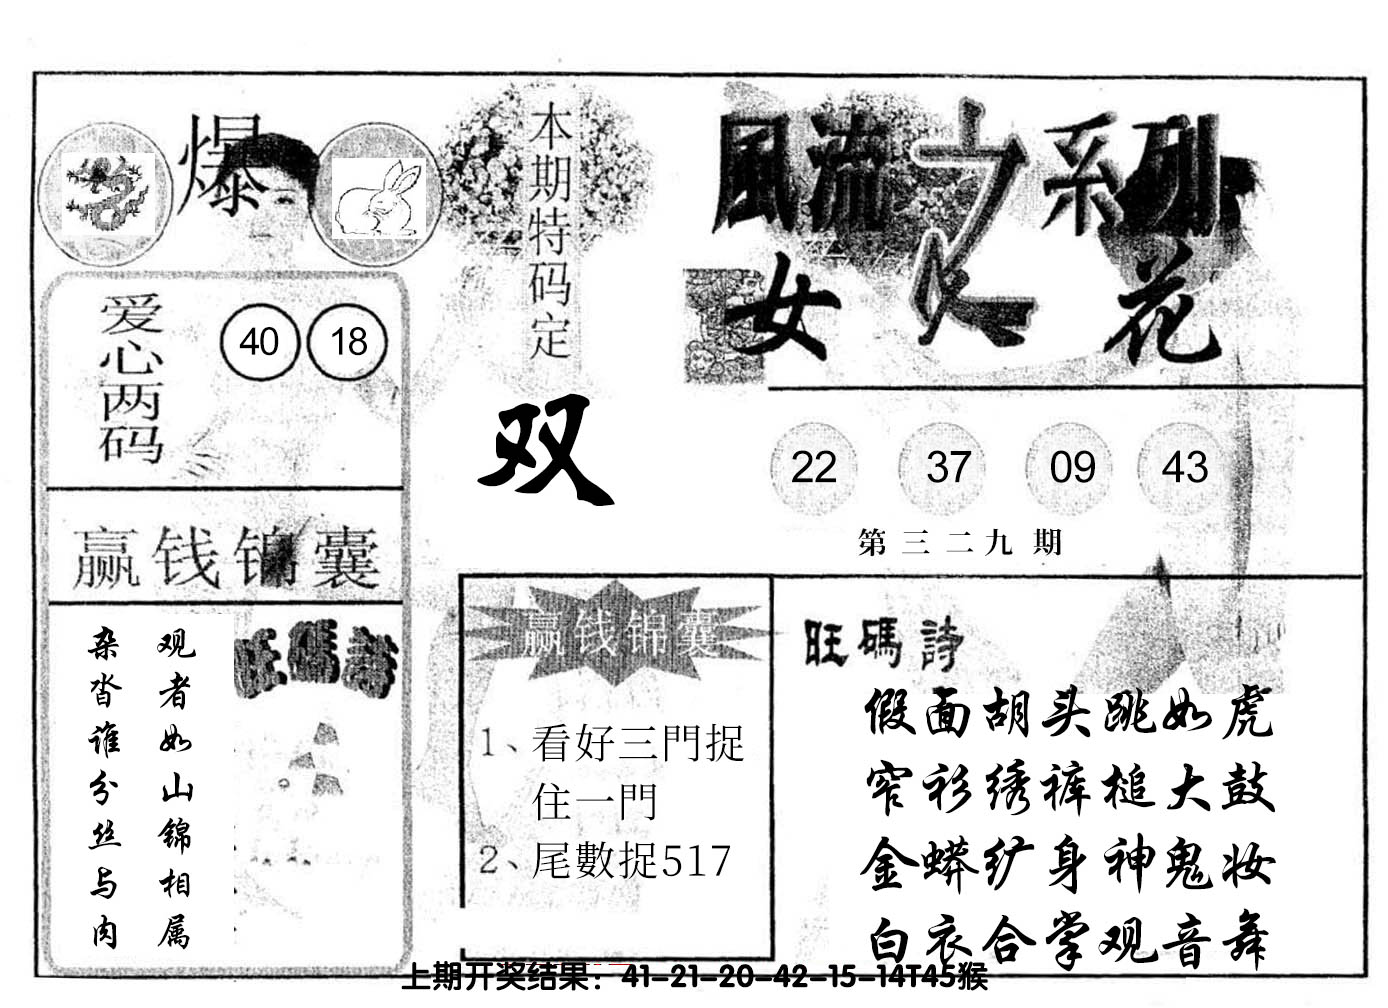 爆
本期特码定
双
風流之系列
女人花
爱心两码
40 18
22 37 09 43
第三二九期
赢钱锦囊
观者如山锦相属
杂沓谁分丝与肉
旺碼詩
赢钱锦囊
1、看好三門捉
住一門
2、尾數捉517
旺碼詩
假面胡头跳如虎
窄衫绣裤槌大鼓
金蟒纩身神鬼妆
白衣合掌观音舞
上期开奖结果：41-21-20-42-15-14T45猴